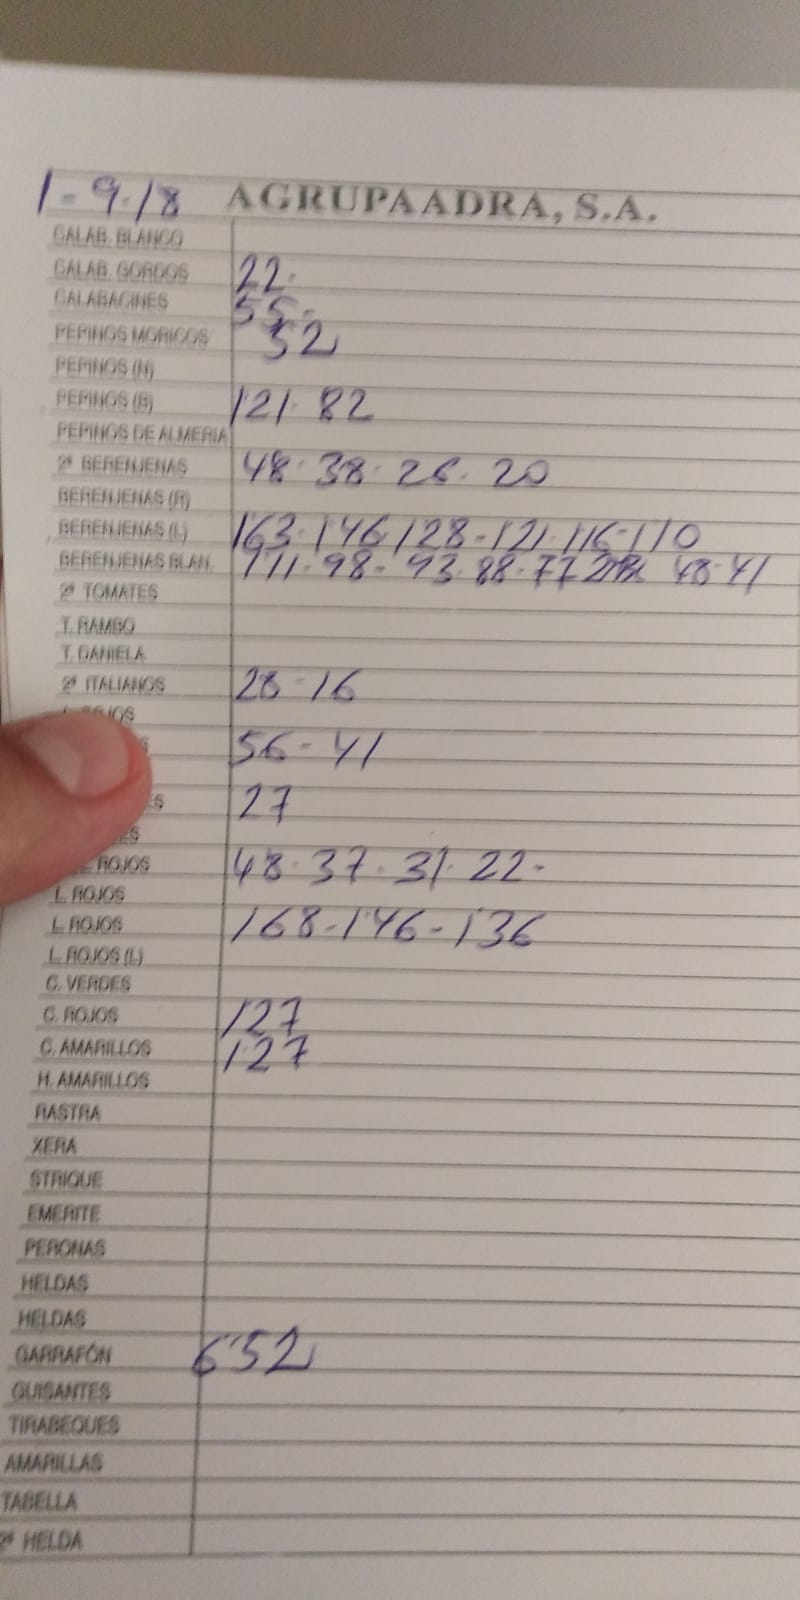 1-9-18 AGRUPAADRA, S.A.
CALAB. BLANCO
CALAB. GORDOS 22.
CALABACINES 55-
PEPINOS MORICOS 52
PEPINOS (N)
PEPINOS (B) 121. 82
PEPINOS DE ALMERIA
2ª BERENJENAS 48. 38. 26. 20
BERENJENAS (R)
BERENJENAS (L) 163. 146 128-121. 116-110
BERENJENAS BLAN. 111-98- 93. 88-77 48-41
2ª TOMATES
T. RAMBO
T. DANIELA
2ª ITALIANOS 28-16
L. ROJOS
56-41
27
ROJOS 48. 37. 31. 22-
L. ROJOS
L. ROJOS 168-146-136
L. ROJOS (L)
C. VERDES
C. ROJOS 127
C. AMARILLOS 127
H. AMARILLOS
RASTRA
XERA
STRIQUE
EMERITE
PERONAS
HELDAS
HELDAS
GARRAFÓN 6'52
GUISANTES
TIRABEQUES
AMARILLAS
TABELLA
2ª HELDA